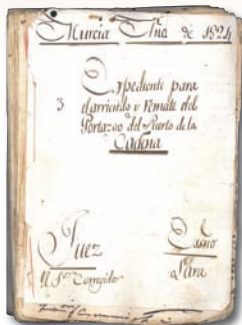 Murcia Año de 1824
Expediente para
3 el arriendo y Remate del
Portazgo del Puerto de la
Cadena
Juez
El Sr. Corregidor
Esno
Lara